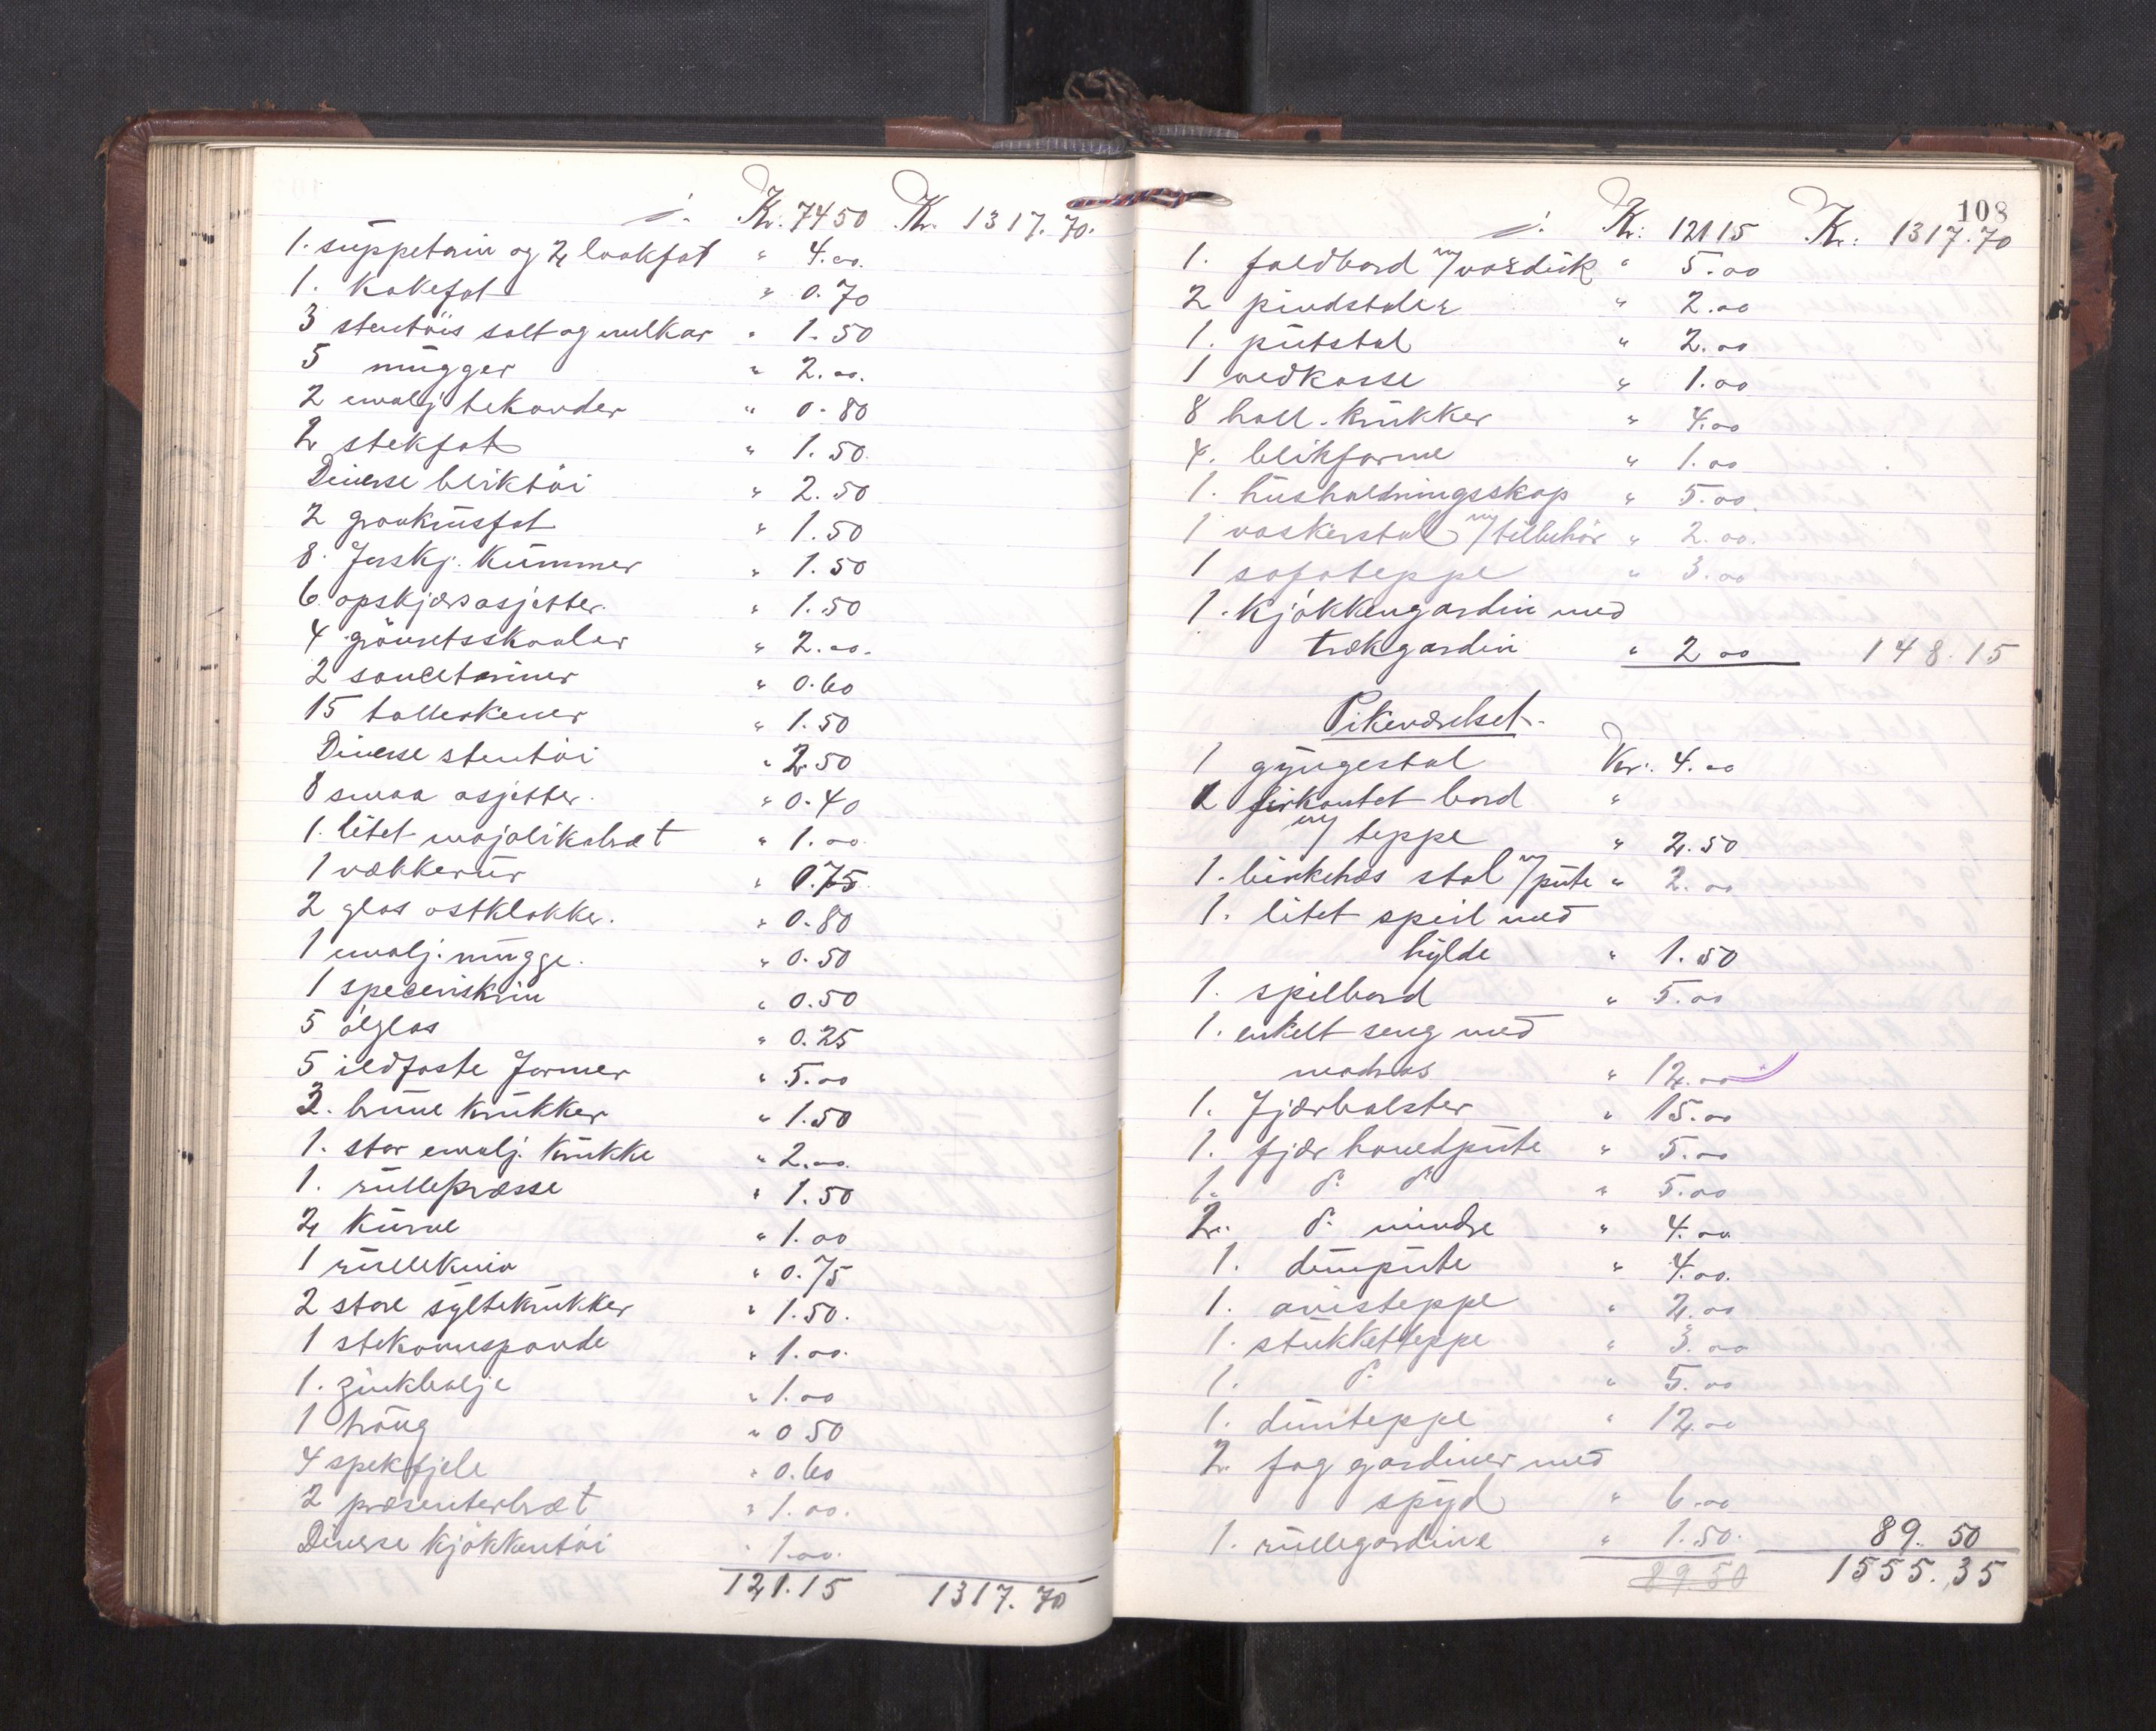 ./. Kr. 7450 Kr. 1317.70.
1. suppeterin og 2 lookfat " 4.00.
1. kakefat " 0.70
3 stentöis salt og melkar " 1.50
5 mugger " 2.00.
2 emalj tekander " 0.80
2 stekfat " 1.50
Diverse bliktöi " 2.50
2 graukrusfat " 1.50
8. forskj. kummer " 1.50
6 opskjærsasjetter. " 1.50
4 grönsetsskaaler " 2.00.
2 saucetminer " 0.60
15 tallerkener " 1.50
Diverse stentöi " 2.50
8 smaa asjetter. " 0.40
1. litet majolikabræt " 1.00
1 vækkerur " 0.75
2 glas ostklokke. " 0.80
1 emalj. mugge. " 0.50
1 speceriskrin " 0.50
5 ölglas " 0.25
5 ildfaste former " 5.00
3. brune krukker " 1.50
1. stor emalj. krukke " 2.00.
1. rullepresse " 1.50
2 kurve " 1.00
1 rullekniv " 0.75
2 store syltekrukker " 1.50.
1 stekovnspande " 1.00.
1. zinkbalje " 1.00
1 traug " 0 50
4 spekfjele " 0.60
2 præsenterbræt " 1.00.
Diverse kjökkentöi " 1.00.
121.15 1317.70
108
./. Kr: 12115 Kr: 1317.70
1. foldbord m/voxduk " 5.00
2 pindstoler " 2.00
1. putstol " 2.00
1 vedkasse " 1.00
8 holl. krukker " 4.00
4. blikforme " 1.00
1. husholdningsskap " 5.00.
1 vaskerstol m/tilbehör " 2.00.
1 sofateppe " 3.00
1. kjökkengardin med
trækgardin " 2 00 148.15
Pikeværelset.
1 gyngestol Kr. 4.00
1 firkantet bord "
m/ teppe " 2.50
1. birketræs stol m/pute " 2.00
1. litet speil med
hylde " 1.50
1. spilbord " 5.00
1. enkelt seng med
madras " 12.00
1. fjærbolster " 15.00
1. fjær hovedpute " 5.00
1. d. d. " 5.00
2. d. mindre " 4.00
1. dunpute " 4.00.
1. avisteppe " 2.00
1. stukketteppe " 3.00
1. d. " 5.00
1. dunteppe " 12.00
2. fag gardiner med
spyd " 6.00
1. rullegardine " 1.50. 89. 50
89 50 1555.35